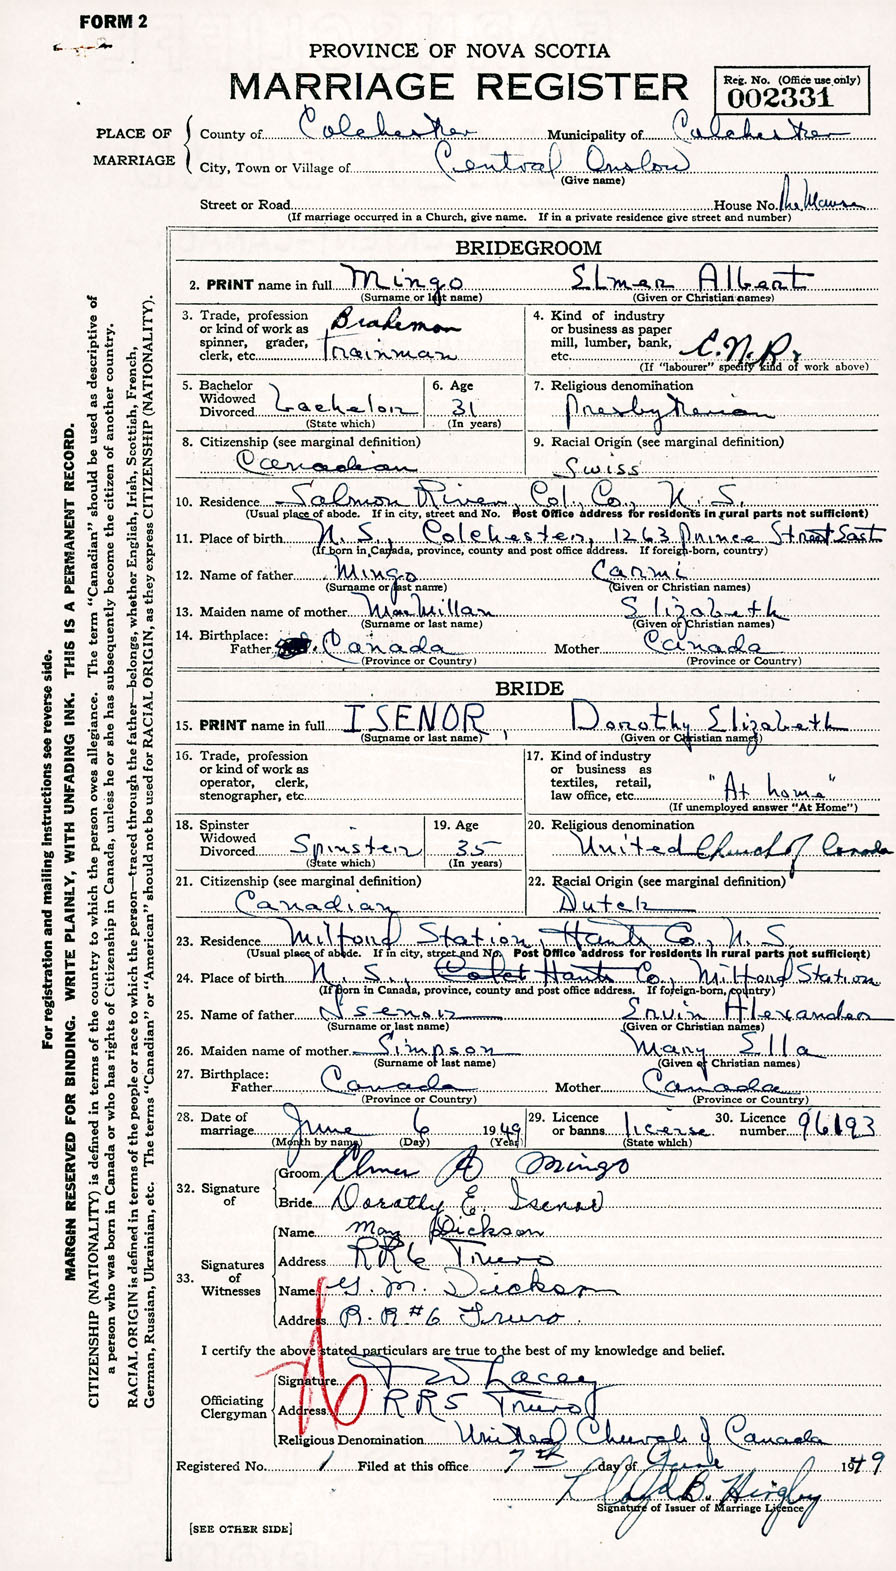 FORM 2
PROVINCE OF NOVA SCOTIA
MARRIAGE REGISTER
Reg. No. (Office use only)
002331
PLACE OF MARRIAGE
County of Colchester Municipality of Colchester
City, Town or Village of Central Onslow
(Give name)
Street or Road House No. The Manse
(If marriage occurred in a Church, give name. If in a private residence give street and number)
BRIDEGROOM
2. PRINT name in full Mingo Elmer Albert
(Surname or last name) (Given or Christian names)
3. Trade, profession or kind of work as spinner, grader, clerk, etc. Brakeman Trainman
4. Kind of industry or business as paper mill, lumber, bank, etc. C.N.R.
(If "labourer" specify kind of work above)
5. Bachelor Widowed Divorced bachelor
(State which)
6. Age 31
(In years)
7. Religious denomination
Presbyterian
8. Citizenship (see marginal definition)
Canadian
9. Racial Origin (see marginal definition)
Swiss
10. Residence Salmon River Col. Co., N. S.
(Usual place of abode. If in city, street and No. Post Office address for residents in rural parts not sufficient)
11. Place of birth N. S., Colchester, 1263 Prince Street East
(If born in Canada, province, county and post office address. If foreign-born, country)
12. Name of father Mingo Carmi
(Surname or last name) (Given or Christian names)
13. Maiden name of mother MacMillan Elizabeth
(Surname or last name) (Given or Christian names)
14. Birthplace:
Father Canada Mother Canada
(Province or Country) (Province or Country)
BRIDE
15. PRINT name in full ISENOR, Dorothy Elizabeth
(Surname or last name) (Given or Christian names)
16. Trade, profession or kind of work as operator, clerk, stenographer, etc.
17. Kind of industry or business as textiles, retail, law office, etc. "At home"
(If unemployed answer "At Home")
18. Spinster Widowed Divorced Spinster
(State which)
19. Age 35
(In years)
20. Religious denomination
United Church of Canada
21. Citizenship (see marginal definition)
Canadian
22. Racial Origin (see marginal definition)
Dutch
23. Residence Milford Station, Hants Co., N. S.
(Usual place of abode. If in city, street and No. Post Office address for residents in rural parts not sufficient)
24. Place of birth N. S., Hants Co., Milford Station
(If born in Canada, province, county and post office address. If foreign-born, country)
25. Name of father Isenor Ervin Alexander
(Surname or last name) (Given or Christian names)
26. Maiden name of mother Simpson Mary Ella
(Surname or last name) (Given or Christian names)
27. Birthplace:
Father Canada Mother Canada
(Province or Country) (Province or Country)
28. Date of marriage June 6 1949
(Month by name) (Day) (Year)
29. Licence or banns license
(State which)
30. Licence number 96193
32. Signature of
Groom Elmer A Mingo
Bride Dorothy E. Isenor
33. Signatures of Witnesses
Name May Dickson
Address RR6 Truro
Name G. M. Dickson
Address R. R #6 Truro.
I certify the above stated particulars are true to the best of my knowledge and belief.
Officiating Clergyman
Signature T W Lacey
Address RR5 Truro
Religious Denomination United Church of Canada
Registered No. 1 Filed at this office 7th day of June 1949
Lloyd B. Hingley
Signature of Issuer of Marriage Licence
[SEE OTHER SIDE]
For registration and mailing instructions see reverse side.
MARGIN RESERVED FOR BINDING. WRITE PLAINLY, WITH UNFADING INK. THIS IS A PERMANENT RECORD.
CITIZENSHIP (NATIONALITY) is defined in terms of the country to which the person owes allegiance. The term "Canadian" should be used as descriptive of
a person who was born in Canada or who has rights of Citizenship in Canada, unless he or she has subsequently become the citizen of another country.
RACIAL ORIGIN is defined in terms of the people or race to which the person—traced through the father—belongs, whether English, Irish, Scottish, French,
German, Russian, Ukrainian, etc. The terms "Canadian" or "American" should not be used for RACIAL ORIGIN, as they express CITIZENSHIP (NATIONALITY).